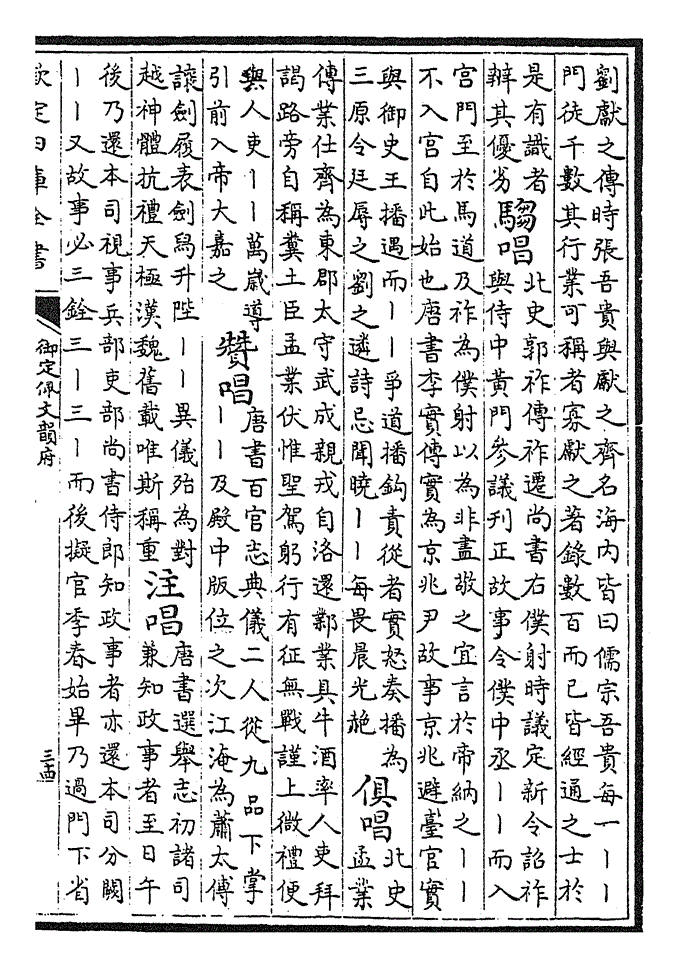 劉獻之傳時張吾貴與獻之齊名海内皆曰儒宗吾貴每一丨丨
門徒千數其行業可稱者寡獻之著錄數百而已皆經通之士於
是有識者
辨其優劣
騶唱
北史郭祚傳祚遷尚書右僕射時議定新令詔祚
與侍中黄門參議刊正故事令僕中丞丨丨而入
宫門至於馬道及祚為僕射以為非盡敬之宜言於帝納之丨丨
不入宫自此始也唐書李實傳實為京兆尹故事京兆避臺官實
與御史王播遇而丨丨爭道播鉤責從者實怒奏播為
三原令廷辱之劉之遴詩忌聞曉丨丨每畏晨光赩
俱唱
北史
孟業
傳業仕齊為東郡太守武成親戎自洛還鄴業具牛酒率人吏拜
謁路旁自稱糞土臣孟業伏惟聖駕躬行有征無戰謹上微禮便
與人吏丨丨萬歲導
引前入帝大嘉之
贊唱
唐書百官志典儀二人從九品下掌
丨丨及殿中版位之次江淹為蕭太傅
讓劍履表劍舄升陛丨丨異儀殆為對
越神體抗禮天極漢魏舊載唯斯稱重
注唱
唐書選舉志初諸司
兼知政事者至日午
後乃還本司視事兵部吏部尚書侍郎知政事者亦還本司分闕
丨丨又故事必三銓三丨三丨而後擬官季春始畢乃過門下省
欽定四庫全書
御定佩文韻府
三十四